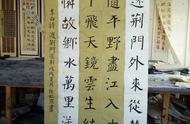 遠荊門外來從
隨平野盡江入
下飛天鏡雲生結
憐故鄉水萬里送
李白詩渡荊門送別